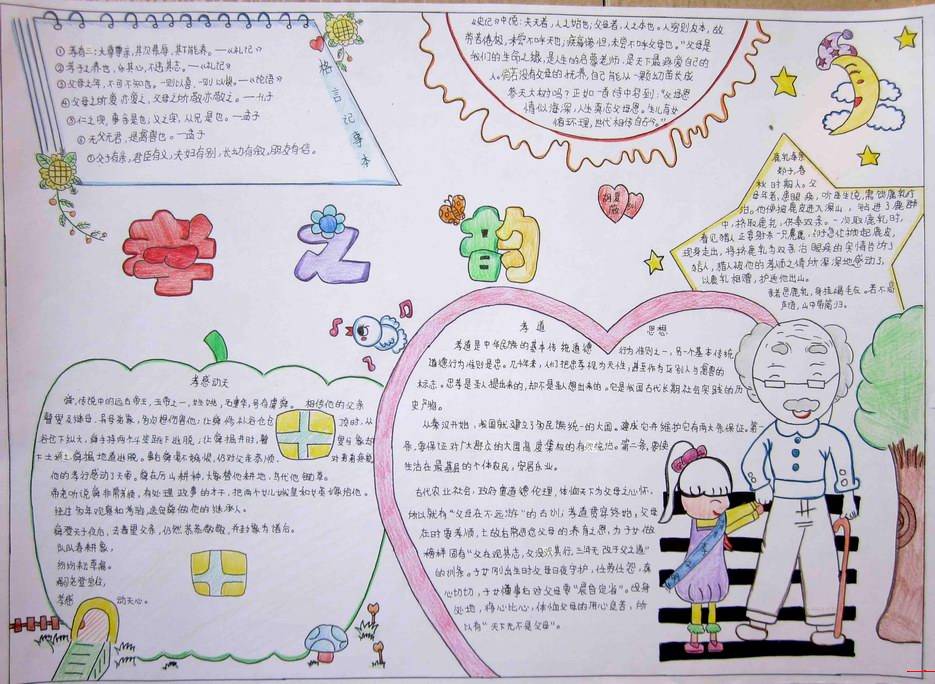 格言记尊本
①孝有三：大尊尊亲，其次弗辱，其下能养。—《礼记》
②孝子之养也，乐其心，不违其志。—《礼记》
③父母之年，不可不知也。一则以喜，一则以惧。—《论语》
④父母之所爱亦爱之，父母之所敬亦敬之。—孔子
⑤仁之实，事亲是也；义之实，从兄是也。—孟子
⑥无父无君，是禽兽也。—孟子
⑦父子有亲，君臣有义，夫妇有别，长幼有叙，朋友有信。
《史记》中说：夫天者，人之始也；父母者，人之本也。人穷则反本，故
劳苦倦极，未尝不呼天也；疾痛惨怛，未尝不呼父母也。"父母是
我们的生命之源，是人生的启蒙老师，是天下最疼爱自己的
人。倘若没有父母的抚养，自己能从一颗幼苗长成
参天大树吗？正如一首诗中写到："父母恩
情似海深，人生莫忘父母恩。生儿育女
循环理，世代相传自古今。"
孝之昌
鹿乳奉亲
郯子，春
秋时期人。父
母年老，患眼疾，听医生说，需饮鹿乳疗
治。他便披鹿皮进入深山，钻进了鹿群
中，挤取鹿乳，供奉双亲。一次取鹿乳时，
看见猎人正要射杀一只麂鹿，郯子急忙掀起鹿皮，
现身走出，将挤鹿乳为双亲治眼疾的实情告诉了
猎人，猎人被他的孝顺之情所深深地感动了，
以鹿乳相赠，护送他出山。
亲老思鹿乳，身挂褐毛衣。若不高
声语，山中带箭归。
孝感动天
舜，传说中的远古帝王，五帝之一，姓姚，名重华，号有虞舜。
相传他的父亲
顶时，从
他的孝行感动了天帝。舜在历山耕种，大象替他耕地，鸟代他锄草。
帝尧听说舜非常孝顺，有处理政事的才干，把两个女儿娥皇和女英嫁给他。
经过多年观察和考验，选定舜做他的继承人。
舜登天子位后，去看望父亲，仍然恭恭敬敬，并封象为诸侯。
队队春耕象，
纷纷耘草禽。
嗣尧登宝位，
孝感动天心。
孝道 思想
孝道是中华民族的基本传统道德行为准则之一，另一个基本传统
道德行为准则是忠。几千年来，人们把忠孝视为天性，甚至作为区别人与禽兽的
标志。忠孝是圣人提出来的，却不是圣人想出来的。它是我国古代长期社会实践的历
史产物。
从秦汉开始，我国就建立了多民族统一的大国。建成它并维护它有两大保证。第一
生活在最基层的个体农民，安居乐业。
古代农业社会，政府重道德伦理，体恤天下为父母之心怀，
所以就有"父母在不远游"的古训；孝道贯穿始终，父母
在时要孝顺，
则有"父在观其志，父没观其行，三年无改于父之道"
的训示。子女则出生时父母日夜守护，任劳任怨，真
心切切，子女懂事后对父母要"晨昏定省"。设身
处地，将心比心，体恤父母的用心良苦，所
以有"天下无不是父母"。